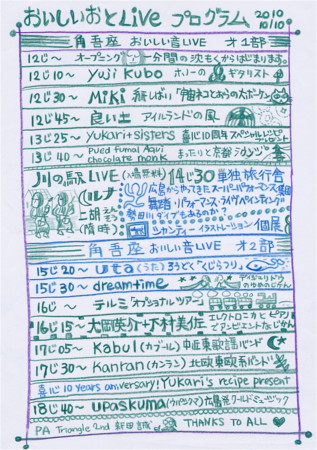 おいしいおとLive プログラム 2010 10/10
角吾座 おいしい音LIVE オ1部
12じ〜 オープニング 一分間の沈もくからはじまります。
12じ10〜 Yuji Kubo ホリーの ギタリスト
12じ30〜 Miki 紙しばい
12じ45〜 良い土 アイルランドの風
13じ25〜 Yukari+sisters 喜心10周年スペシャルレシピプレゼント
13じ40〜 Pued fumal Aqui chocolate monk まったりと京都ラウンジ
川の駅LIVE (入場無料) 14じ30 単独旅行舎
(ルナ 上胡えり (随時)
広島からやってきたスーパーパフォーマンス集団
舞踏・パフォーマンス・ライヴペインティング
勢田川ダイブもあるのか?
シャンティー イラストレーション 個展
角吾座 おいしい音LIVE オ2部
15じ20〜 uta(うた) ろうどく「くじらつり」
15じ30〜 dreamtime ディジュリドゥ
16じ〜 テルミ"オプショナルツアー
16じ15〜 大岡英介+下村美佐 エレクトロニカとピアノ
17じ05〜 Kabul(カブール) 中近東歌謡バンド
17じ30〜 Kanran(カンラン) 北欧東欧系バンド
喜心 10 years anniversary! Yukari's recipe present
18じ40〜 upaskuma(ウパシクマ) 広島発ワールドミュージック
PA Triangle 2nd 新田誠 THANKS TO ALL